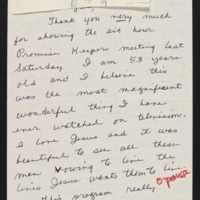 Thank you very much
for showing the six hour
Promise Keepers meeting last
Saturday. I am 53 years
old and I believe this
was the most magnificent
wonderful thing I have
ever watched on television.
I love Jesus and it was
beautiful to see all these
men vowing to live the
lives Jesus wants them to live.
This program really